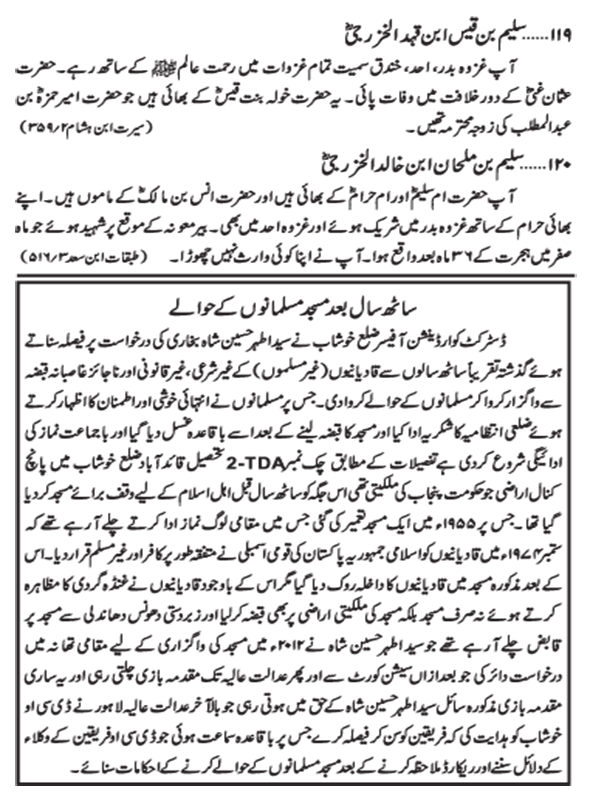 ۱۱۹......سلیم بن قیس ابن قہد الخزرجیؓ
آپ غزوہ بدر، احد، خندق سمیت تمام غزوات میں رحمت عالم ﷺ کے ساتھ رہے۔ حضرت
عثمان غنیؓ کے دور خلافت میں وفات پائی۔ یہ حضرت خولہ بنت قیسؓ کے بھائی ہیں جو حضرت امیر حمزہؓ بن
عبدالمطلب کی زوجہ محترمہ تھیں۔ (سیرت ابن ہشام ۲/۳۵۹)
۱۲۰......سلیم بن ملحان ابن خالد الخزرجیؓ
آپ حضرت ام سلیمؓ اور ام حرامؓ کے بھائی ہیں اور حضرت انس بن مالکؓ کے ماموں ہیں۔ اپنے
بھائی حرام کے ساتھ غزوہ بدر میں شریک ہوئے اور غزوہ احد میں بھی۔ بیر معونہ کے موقع پر شہید ہوئے جو ماہ
صفر میں ہجرت کے ۳۶ ماہ بعد واقع ہوا۔ آپ نے اپنا کوئی وارث نہیں چھوڑا۔ (طبقات ابن سعد ۳/۵۱۶)
ساٹھ سال بعد مسجد مسلمانوں کے حوالے
ڈسٹرکٹ کوارڈینشن آفیسر ضلع خوشاب نے سید اطہر حسین شاہ بخاری کی درخواست پر فیصلہ سناتے
ہوئے گذشتہ تقریباً ساٹھ سالوں سے قادیانیوں (غیر مسلموں) کے غیر شرعی، غیر قانونی اور ناجائز غاصبانہ قبضہ
سے واگزار کروا کر مسلمانوں کے حوالے کروا دی۔ جس پر مسلمانوں نے انتہائی خوشی اور اطمنان کا اظہار کرتے
ہوئے ضلعی انتظامیہ کا شکریہ ادا کیا اور مسجد کا قبضہ لینے کے بعد اسے باقاعدہ غسل دیا گیا اور باجماعت نماز کی
ادائیگی شروع کر دی ہے تفصیلات کے مطابق چک نمبر 2-TDA تحصیل قائد آباد ضلع خوشاب میں پانچ
کنال اراضی جو حکومت پنجاب کی ملکیتی تھی اس جگہ کو ساٹھ سال قبل اہل اسلام کے لیے وقف برائے مسجد کر دیا
گیا تھا۔ جس پر ۱۹۵۵ء میں ایک مسجد تعمیر کی گئی جس میں مقامی لوگ نماز ادا کرتے چلے آ رہے تھے کہ
ستمبر ۱۹۷۴ء میں قادیانیوں کو اسلامی جمہوریہ پاکستان کی قومی اسمبلی نے متفقہ طور پر کافر اور غیر مسلم قرار دیا۔ اس
کے بعد مذکورہ مسجد میں قادیانیوں کا داخلہ روک دیا گیا مگر اس کے باوجود قادیانیوں نے غنڈہ گردی کا مظاہرہ
کرتے ہوئے نہ صرف مسجد بلکہ مسجد کی ملکیتی اراضی پر بھی قبضہ کر لیا اور زبردستی دھونس دھاندلی سے مسجد پر
قابض چلے آ رہے تھے جو سید اطہر حسین شاہ نے ۲۰۱۲ء میں مسجد کی واگزاری کے لیے مقامی تھانہ میں
درخواست دائر کی جو بعد ازاں سیشن کورٹ سے اور پھر عدالت عالیہ تک مقدمہ بازی چلتی رہی اور یہ ساری
مقدمہ بازی مذکورہ سائل سید اطہر حسین شاہ کے حق میں ہوتی رہی جو بالآخر عدالت عالیہ لاہور نے ڈی سی او
خوشاب کو ہدایت کی کہ فریقین کو سن کر فیصلہ کرے جس پر باقاعدہ سماعت ہوئی جو ڈی سی او فریقین کے وکلاء
کے دلائل سننے اور ریکارڈ ملاحظہ کرنے کے بعد مسجد مسلمانوں کے حوالے کرنے کے احکامات سنائے۔